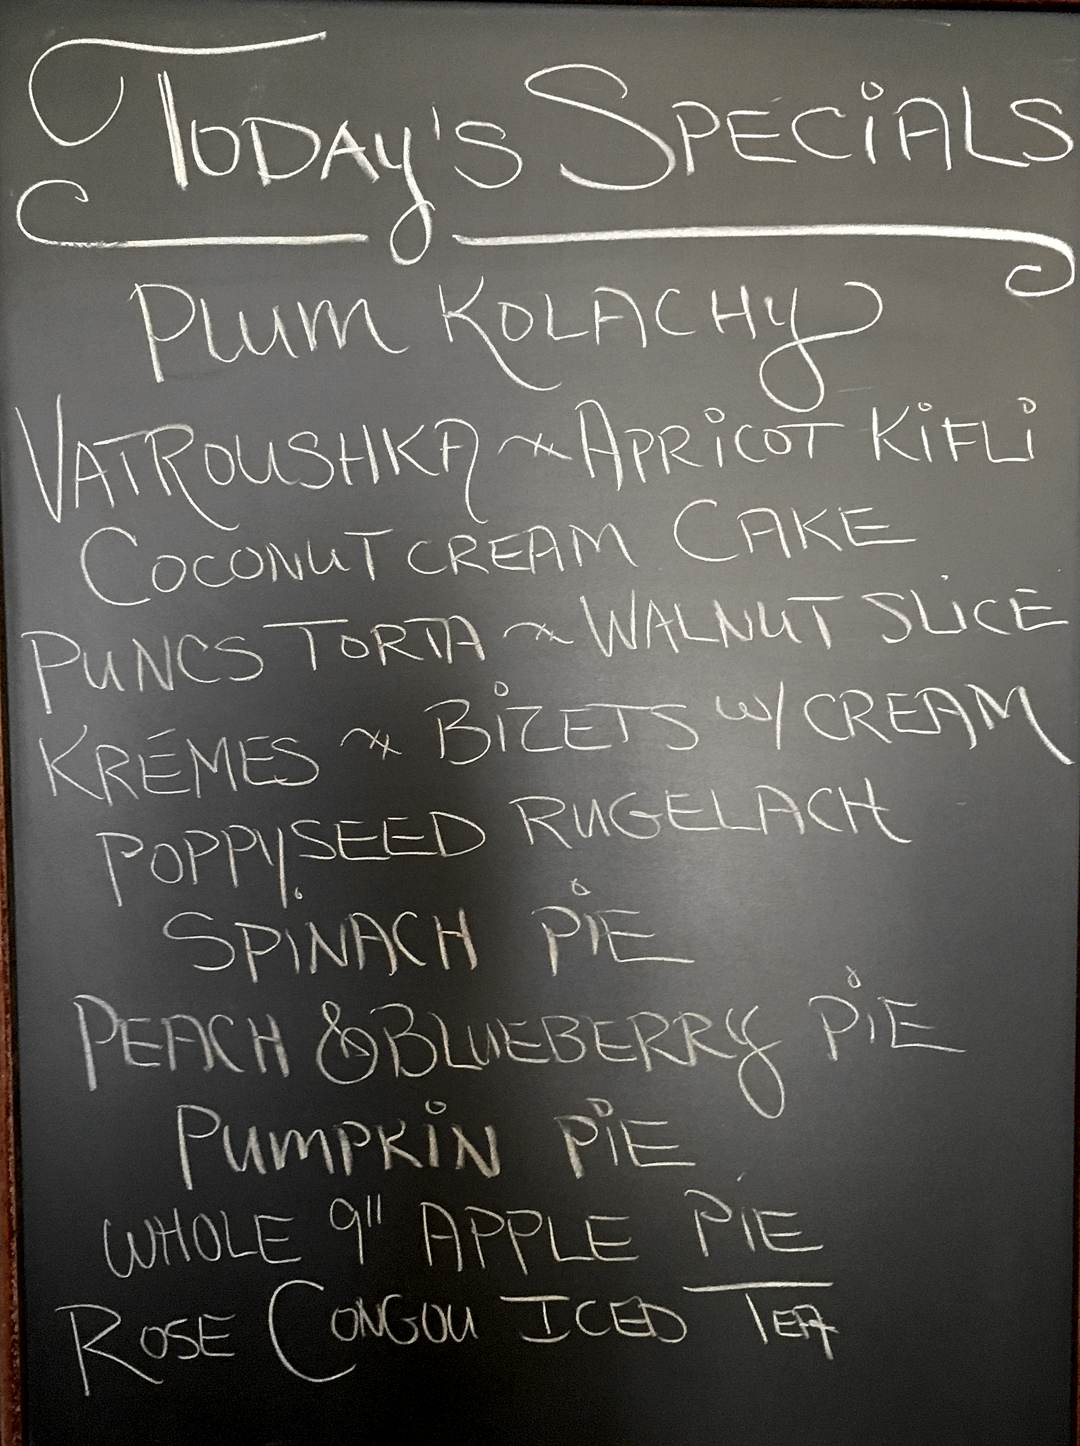 Today's Specials
Plum Kolachy
Vatroushka ~ Apricot Kifli
Coconut Cream Cake
Puncs Torta ~ Walnut Slice
Krémes ~ Bizets w/ Cream
Poppyseed Rugelach
Spinach Pie
Peach & Blueberry Pie
Pumpkin Pie
Whole 9" Apple Pie
Rose Congou Iced Tea